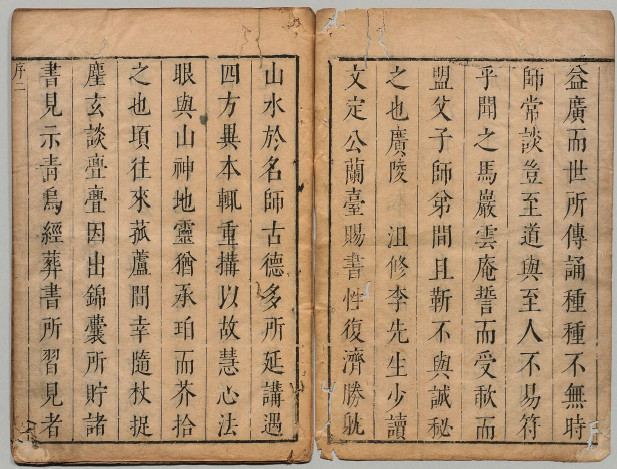 益廣而世所傳誦種種不無時
師常談豈至道與至人不易符
乎聞之馬巖雲庵誓而受歃而
盟父子師弟間且靳不與誠秘
之也廣陵　沮修李先生少讀
文定公蘭臺賜書性復濟勝躭
山水於名師古德多所延講遇
四方異本輒重搆以故慧心法
眼與山神地靈猶承珀而芥拾
之也頃往來菰蘆間幸隨杖捉
麈玄談亹亹因出錦囊所貯諸
書見示靑烏經葬書所習見者
序二